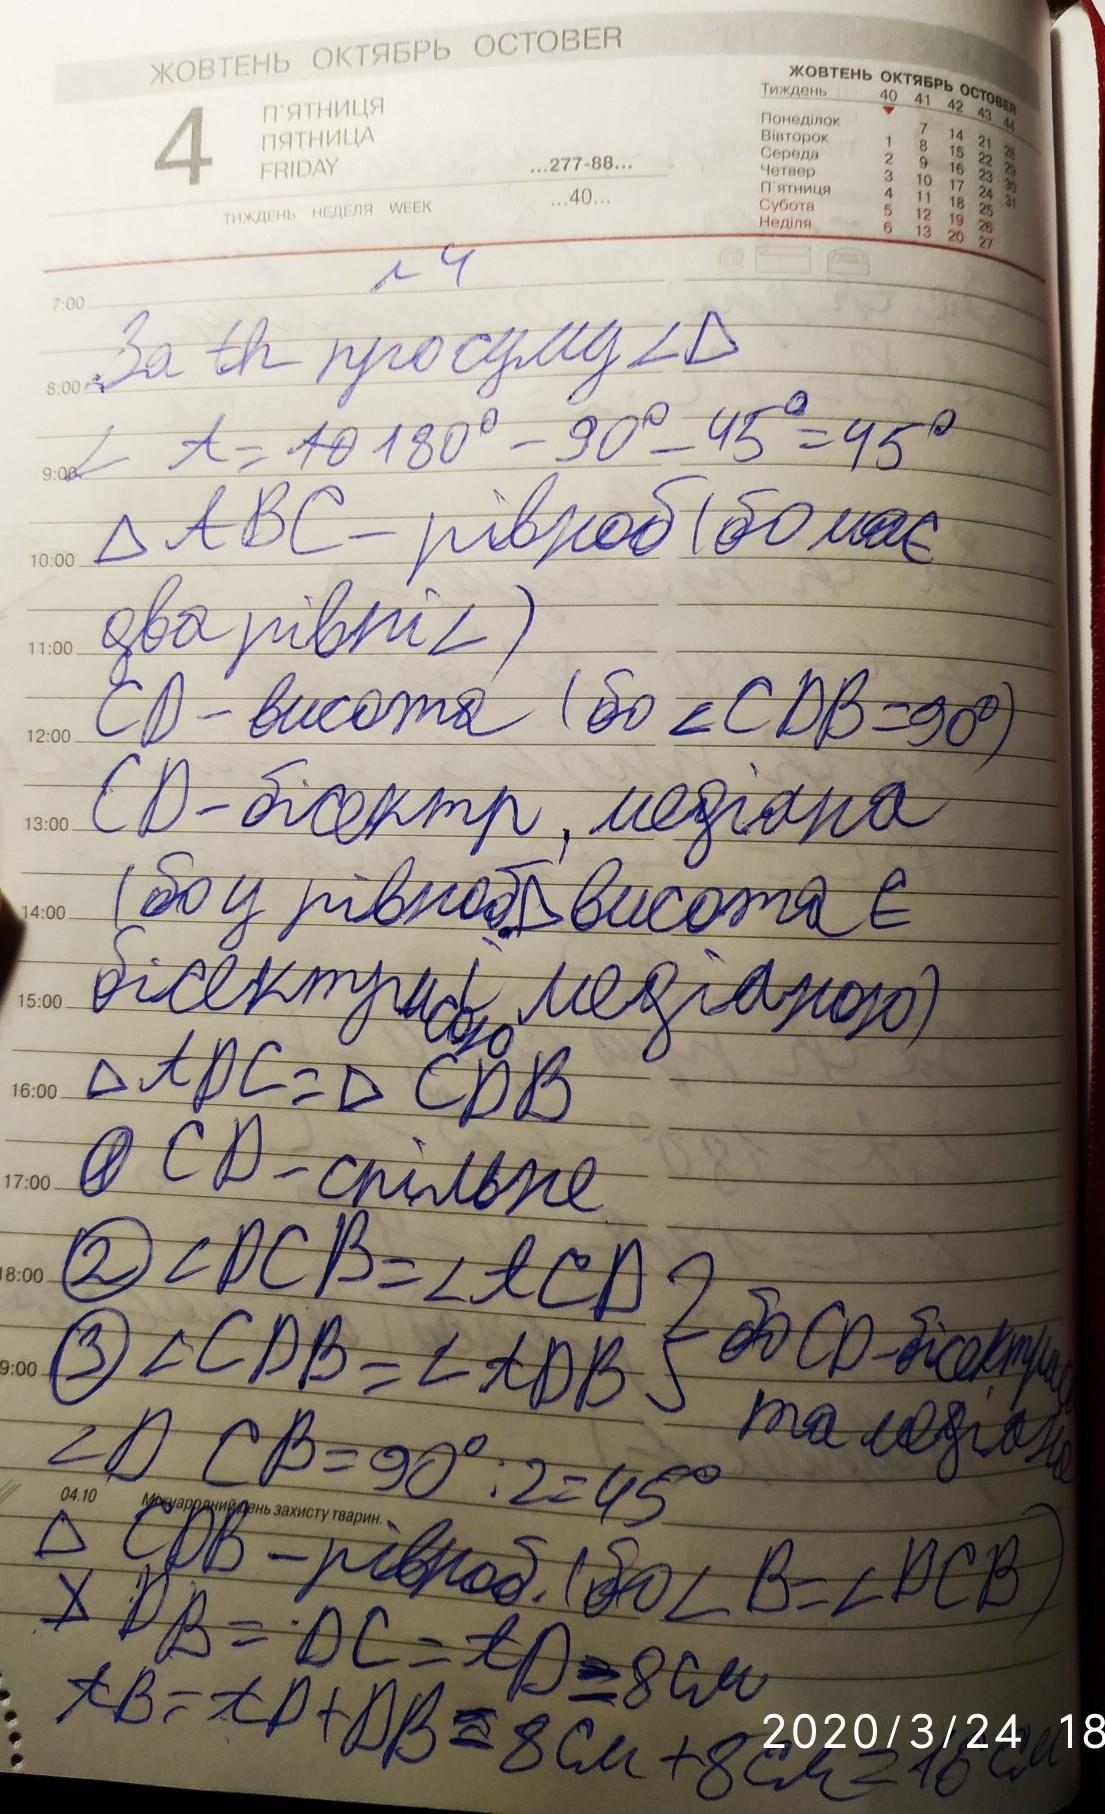 ЖОВТЕНЬ ОКТЯБРЬ OCTOBER
4
П'ЯТНИЦЯ
ПЯТНИЦА
FRIDAY
...277-88...
ТИЖДЕНЬ НЕДЕЛЯ WEEK
...40...
ЖОВТЕНЬ ОКТЯБРЬ OCTOBER
Тиждень 40 41 42 43 44
Понеділок 7 14 21 28
Вівторок 1 8 15 22 29
Середа 2 9 16 23 30
Четвер 3 10 17 24 31
П'ятниця 4 11 18 25
Субота 5 12 19 26
Неділя 6 13 20 27
№4
7:00
За th про суму ∠ Δ
8:00
∠ A = 180° - 90° - 45° = 45°
9:00
Δ ABC - рівноб (бо має
10:00
два рівні ∠)
11:00
CD - висота (бо ∠CDB = 90°)
12:00
CD - бісектр, медіана
13:00
(бо у рівноб Δ висота є
14:00
бісектрисою і медіаною)
15:00
Δ ADC = Δ CDB
16:00
① CD - спільне
17:00
② ∠DCB = ∠ACD
18:00
③ ∠CDB = ∠ADB } бо CD - бісектриса
та медіана
9:00
∠D CB = 90° : 2 = 45°
04.10 Міжнародний день захисту тварин.
Δ CDB - рівноб. (бо ∠B = ∠DCB)
DB = DC = AD = 8 см
AB = AD + DB = 8 см + 8 см = 16 см
2020/3/24 18